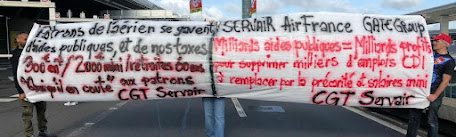 Patrons de l'aérien se gavent
d'aides publiques, et de nos taxes
2000 mini / retraites 60 ans
qu'il en coûte" aux patrons
CGT Servair
SERVAIR AirFrance GATE Group
Milliards aides publiques = Milliards profits
pour supprimer milliers d'emplois CDI
à remplacer par la précarité et salaires mini
CGT Servair